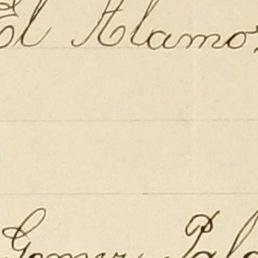 El Alamo
Gomez Pala